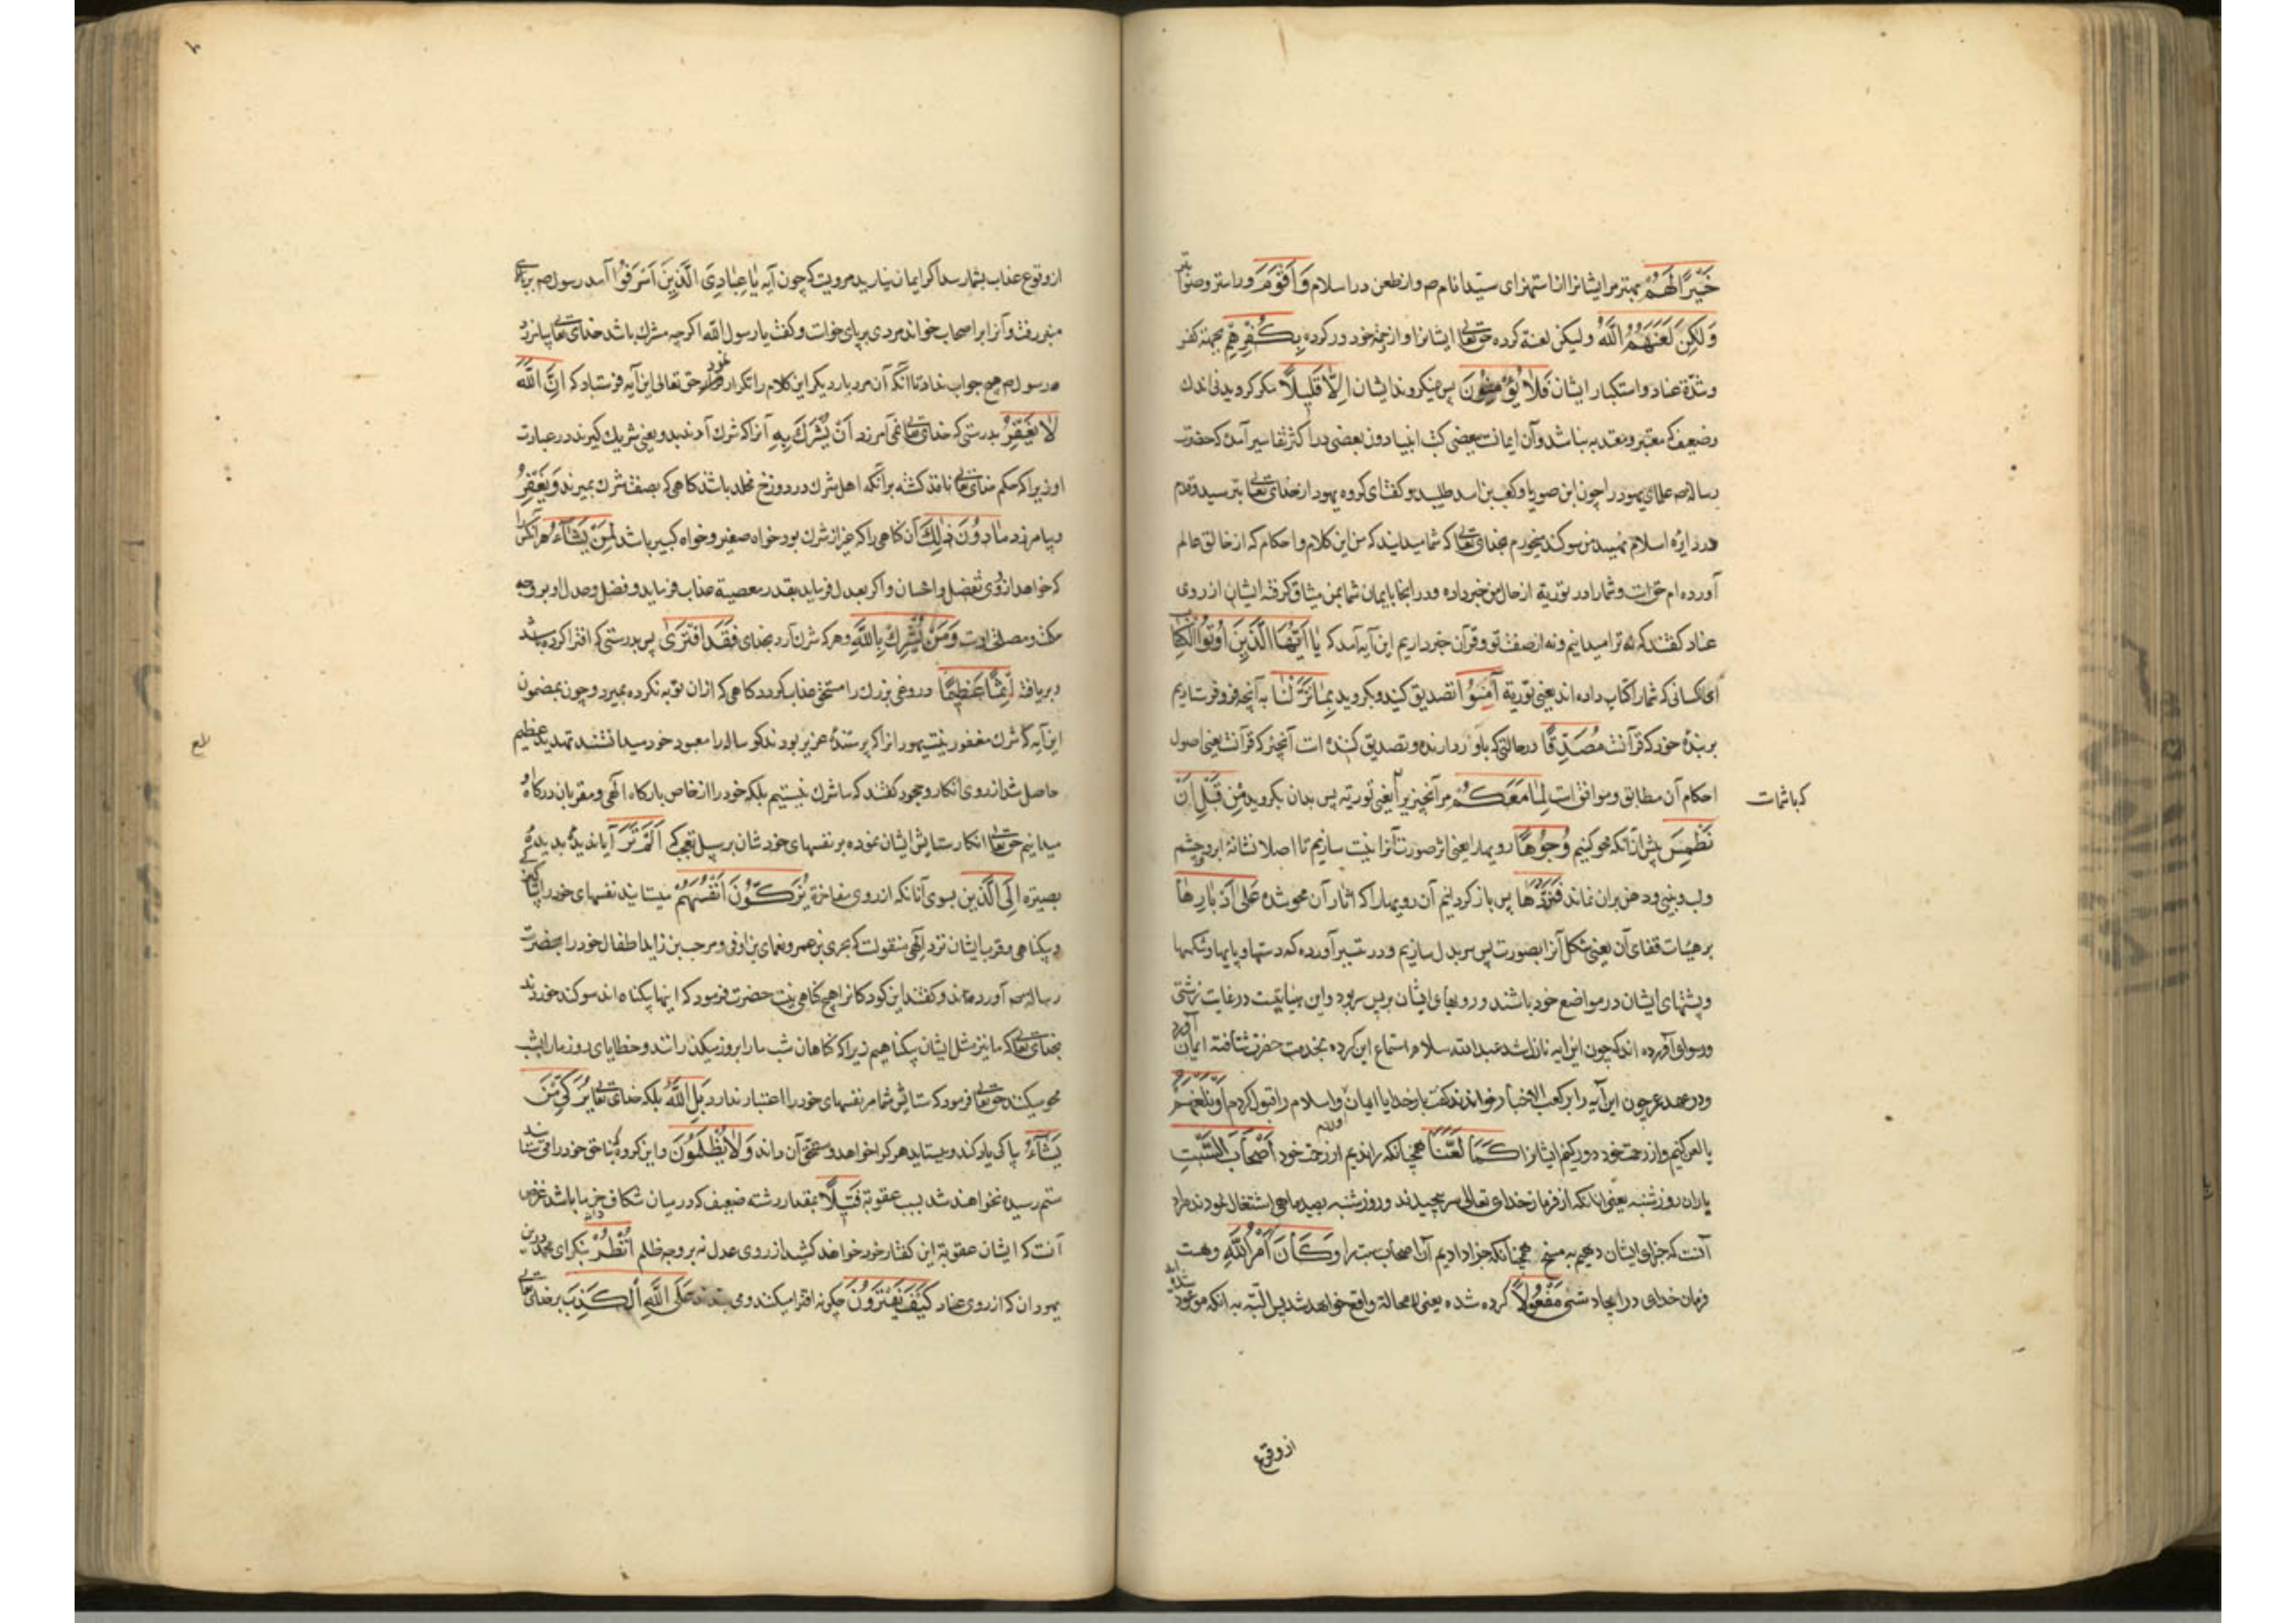 خَيْرًا لَهُمْ بهتر مر ایشانرا از استهزای سیّد انام صم و از طعن در اسلام وَاَقْوَمَ و راستر و صوابتر
وَلٰكِنْ لَعَنَهُمُ اللّٰهُ ولیکن لعنة کرده حقتعالی ایشانرا و از رحمة خود دور کرده بِكُفْرِهِمْ بجهة کفر
و شدّة عناد و استکبار ایشان فَلَا يُؤْمِنُونَ پس نمیکروند ایشان اِلَّا قَلِيلًا مکر کرویدنی اندك
و ضعیف که معتبر و معتد به نباشد و آن ایمانست ببعضی کتب و انبیا دون بعضی در اکثر تفاسیر آمده که حضرت
رسالة صم علمای یهود را چون ابن صوریا و کعب بن اسد طلبید و کفت ای کروه یهود از خدای تعالی بترسید و قدم
در دایرۀ اسلام نهید من سوکند میخورم بخدای تعالی که شما میدانید که من این کلام و احکام که از خالق عالم
آورده ام حق است و شما را در توریة از حال من خبر داده و در انجا بایمان شما بمن میثاق کرفته ایشان از روی
عناد کفتند که نه ترا میدانیم و نه از صفت تو و قرآن خبر داریم این آیه آمد که يَا اَيُّهَا الَّذِينَ اُوتُوا الْكِتَابَ
ای کسانی که شما را کتاب داده اند یعنی توریة آمِنُوا تصدیق کنید و بکروید بِمَا نَزَّلْنَا به آنچه فرو فرستادیم
بر بندۀ خود که قرآنست مُصَدِّقًا در حالتی که باور دارنده و تصدیق کننده است آنچیز که قرآنست یعنی اصول
احکام آن مطابق و موافق است لِمَا مَعَكُمْ مر آنچیز را یعنی توریة پس بدان بکروید مِنْ قَبْلِ اَنْ
که با شماست
نَطْمِسَ پیش از آنکه محو کنیم وُجُوهًا رویها را یعنی اثر صورت آنرا نیست سازیم تا اصلا نشانۀ ابرو و چشم
و لب و بینی و دهن بران نماند فَنَرُدَّهَا پس باز کردانیم آن رویها را که اثار آن محو شده عَلٰى اَدْبَارِهَا
بر هیئات قفای آن یعنی شکل آنرا بصورت پس سر بدل سازیم و در آورده که دستها و پایها و شکمها
و پشتهای ایشان در مواضع خود باشند و رویهای ایشان بر پس سر بود و این هیاتیست در غایت زشتی
و آورده اند که چون این آیه نازل شد عبدالله سلام استماع این کرده بخدمت حضرت شتافته ایمان آورد
و در عهد عمر چون این آیه را بر کعب الاخبار خواندند کفت بار خدایا ایمان و اسلام را قبول کردم اَوْ نَلْعَنَهُمْ
یا لعن کنیم و از رحمت خود دور کنیم ایشانرا كَمَا لَعَنَّا همچنانکه راندیم از رحمت خود اَصْحَابَ السَّبْتِ
یاران روز شنبه یعنی انانکه از فرمان خدای تعالی سر پیچیدند و روز شنبه بصید ماهی اشتغال نمودند مراد
آنست که جزای ایشان دهیم به مسخ همچنانکه جزا دادیم آن اصحاب سبت را وَكَانَ اَمْرُ اللّٰهِ و هست
فرمان خدای در ایجاد شی مَفْعُولًا کرده شده یعنی لا محالة واقع خواهد شد پس البتّه به آنکه موعود شده
از وقوع
از وقوع عذاب بشما رسد اکر ایمان نیارید مرویست که چون آیه يَا عِبَادِيَ الَّذِينَ اَسْرَفُوا آمد رسول صم بر بالای
منبر رفت و آنرا بر اصحاب خواند مردی بر پای خواست و کفت یا رسول الله اکر چه مشرك باشد خدای تعالی بیامرزد
رسول صم هیچ جواب نداد تا آنکه آن مرد بار دیکر این کلام را تکرار نمود حق تعالی این آیه فرستاد که اِنَّ اللّٰهَ
لَا يَغْفِرُ بدرستی که خدای تعالی نمی آمرزد اَنْ يُشْرَكَ بِهِ آنرا که شرك آرند بدو یعنی شریك کیرند در عبادت
او زیرا که حکم خدای تعالی نافذ کشته بر آنکه اهل شرك در دوزخ مخلد باشند کاهی که بصفت شرك بمیرند وَيَغْفِرُ
و بیامرزد مَا دُونَ ذٰلِكَ آن کناهی را که غیر از شرك بود خواه صغیر و خواه کبیر باشد لِمَنْ يَشَاءُ هر آنکس را
که خواهد از روی تفضل و احسان و اکر بعدل فرماید بقدر معصیة عذاب فرماید و فضل و عدل او بر وجه
حکمت و مصلحتست وَمَنْ يُشْرِكْ بِاللّٰهِ و هر که شرك آرد بخدای فَقَدِ افْتَرٰى پس بدرستی که افترا کرده باشد
و بر بافته اِثْمًا عَظِيمًا دروغی بزرك را مستحق عذاب کردد کاهی که از ان توبه نکرده بمیرد و چون بمضمون
این آیه که شرك مغفور نیست یهود را زا که پرستندۀ عزیر بودند و کوساله را معبود خود میدانستند تهدید عظیم
حاصل شد از روی انکار و جحود کفتند که ما شرك نیستیم بلکه خود را از خاص بارکاه الهی و مقربان درکاه او
میدانیم حقتعالی انکار ستایش ایشان نموده بر نفسهای خودشان بر سبیل تعجب که اَلَمْ تَرَ آیا ندیدی بدیدۀ
بصیرة اِلَى الَّذِينَ بسوی آنانکه از روی مفاخرة يُزَكُّونَ اَنْفُسَهُمْ میستایند نفسهای خود را بپاکیزکی
و بیکناهی و قرب ایشان نزد الهی منقولست که بحری بن عمرو و نعمان بن اوفی و مرحب بن زاید اطفال خود را بحضرت
رسالة صم آوردند و کفتند این کودکانرا هیچ کناهی نیست حضرت فرمود که اینها بیکناه اند سوکند خوردند
بخدای تعالی که ما نیز مثل ایشان بیکناهیم زیرا که کناهان شب ما را بروز میکذرانند و خطایای روز ما را بشب
محو میکنند حقتعالی فرمود که ستایش شما مر نفسهای خود را اعتبار ندارد بَلِ اللّٰهُ بلکه خدای تعالی يُزَكِّي مَنْ
يَشَاءُ بپاکی یاد کند و بستاید هر کرا خواهد و مستحق آن داند وَلَا يُظْلَمُونَ و این کروه که بناحق خود را می ستایند
ستم رسیده نخواهند شد بسبب عقوبة فَتِيلًا بمقدار رشته ضعیف که در میان شکاف خرما باشد غرض
آنست که ایشان عقوبة این کفتار خود خواهند کشید از روی عدل نه بر وجه ظلم اُنْظُرْ بنکر ای محمد درین
یهودان که از روی عناد كَيْفَ يَفْتَرُونَ چکونه افترا میکنند و می بندند عَلَى اللّٰهِ الْكَذِبَ بر خدای تعالی